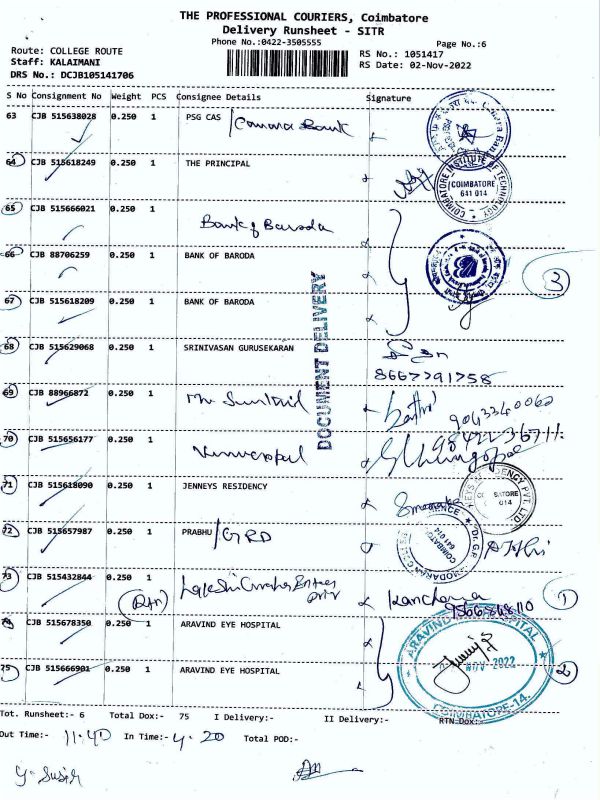 THE PROFESSIONAL COURIERS, Coimbatore
Delivery Runsheet - SITR
Phone No.:0422-3505555
Page No.:6
Route: COLLEGE ROUTE
RS No.: 1051417
Staff: KALAIMANI
RS Date: 02-Nov-2022
DRS No.: DCJB105141706
S No Consignment No Weight PCS Consignee Details Signature
63 CJB 515638028 0.250 1 PSG CAS / Canara Bank
64 CJB 515618249 0.250 1 THE PRINCIPAL
COIMBATORE INSTITUTE OF TECHNOLOGY
COIMBATORE
641 014
65 CJB 515666021 0.250 1 Bank of Baroda
66 CJB 88706259 0.250 1 BANK OF BARODA
3
67 CJB 515618209 0.250 1 BANK OF BARODA
DOCUMENT DELIVERY
68 CJB 515629068 0.250 1 SRINIVASAN GURUSEKARAN
8667791758
69 CJB 88966872 0.250 1
9043340062
70 CJB 515656177 0.250 1
71 CJB 515618090 0.250 1 JENNEYS RESIDENCY
72 CJB 515657987 0.250 1 PRABHU / GRD
COIMBATORE
641 014
73 CJB 515432844 0.250 1
Kanchana
1
74 CJB 515678350 0.250 1 ARAVIND EYE HOSPITAL
75 CJB 515666901 0.250 1 ARAVIND EYE HOSPITAL
ARAVIND EYE HOSPITAL
NOV 2022
COIMBATORE-14.
2
Tot. Runsheet:- 6 Total Dox:- 75 I Delivery:- II Delivery:- RTN Dox:-
Out Time:- 11.40 In Time:- 4.20 Total POD:-